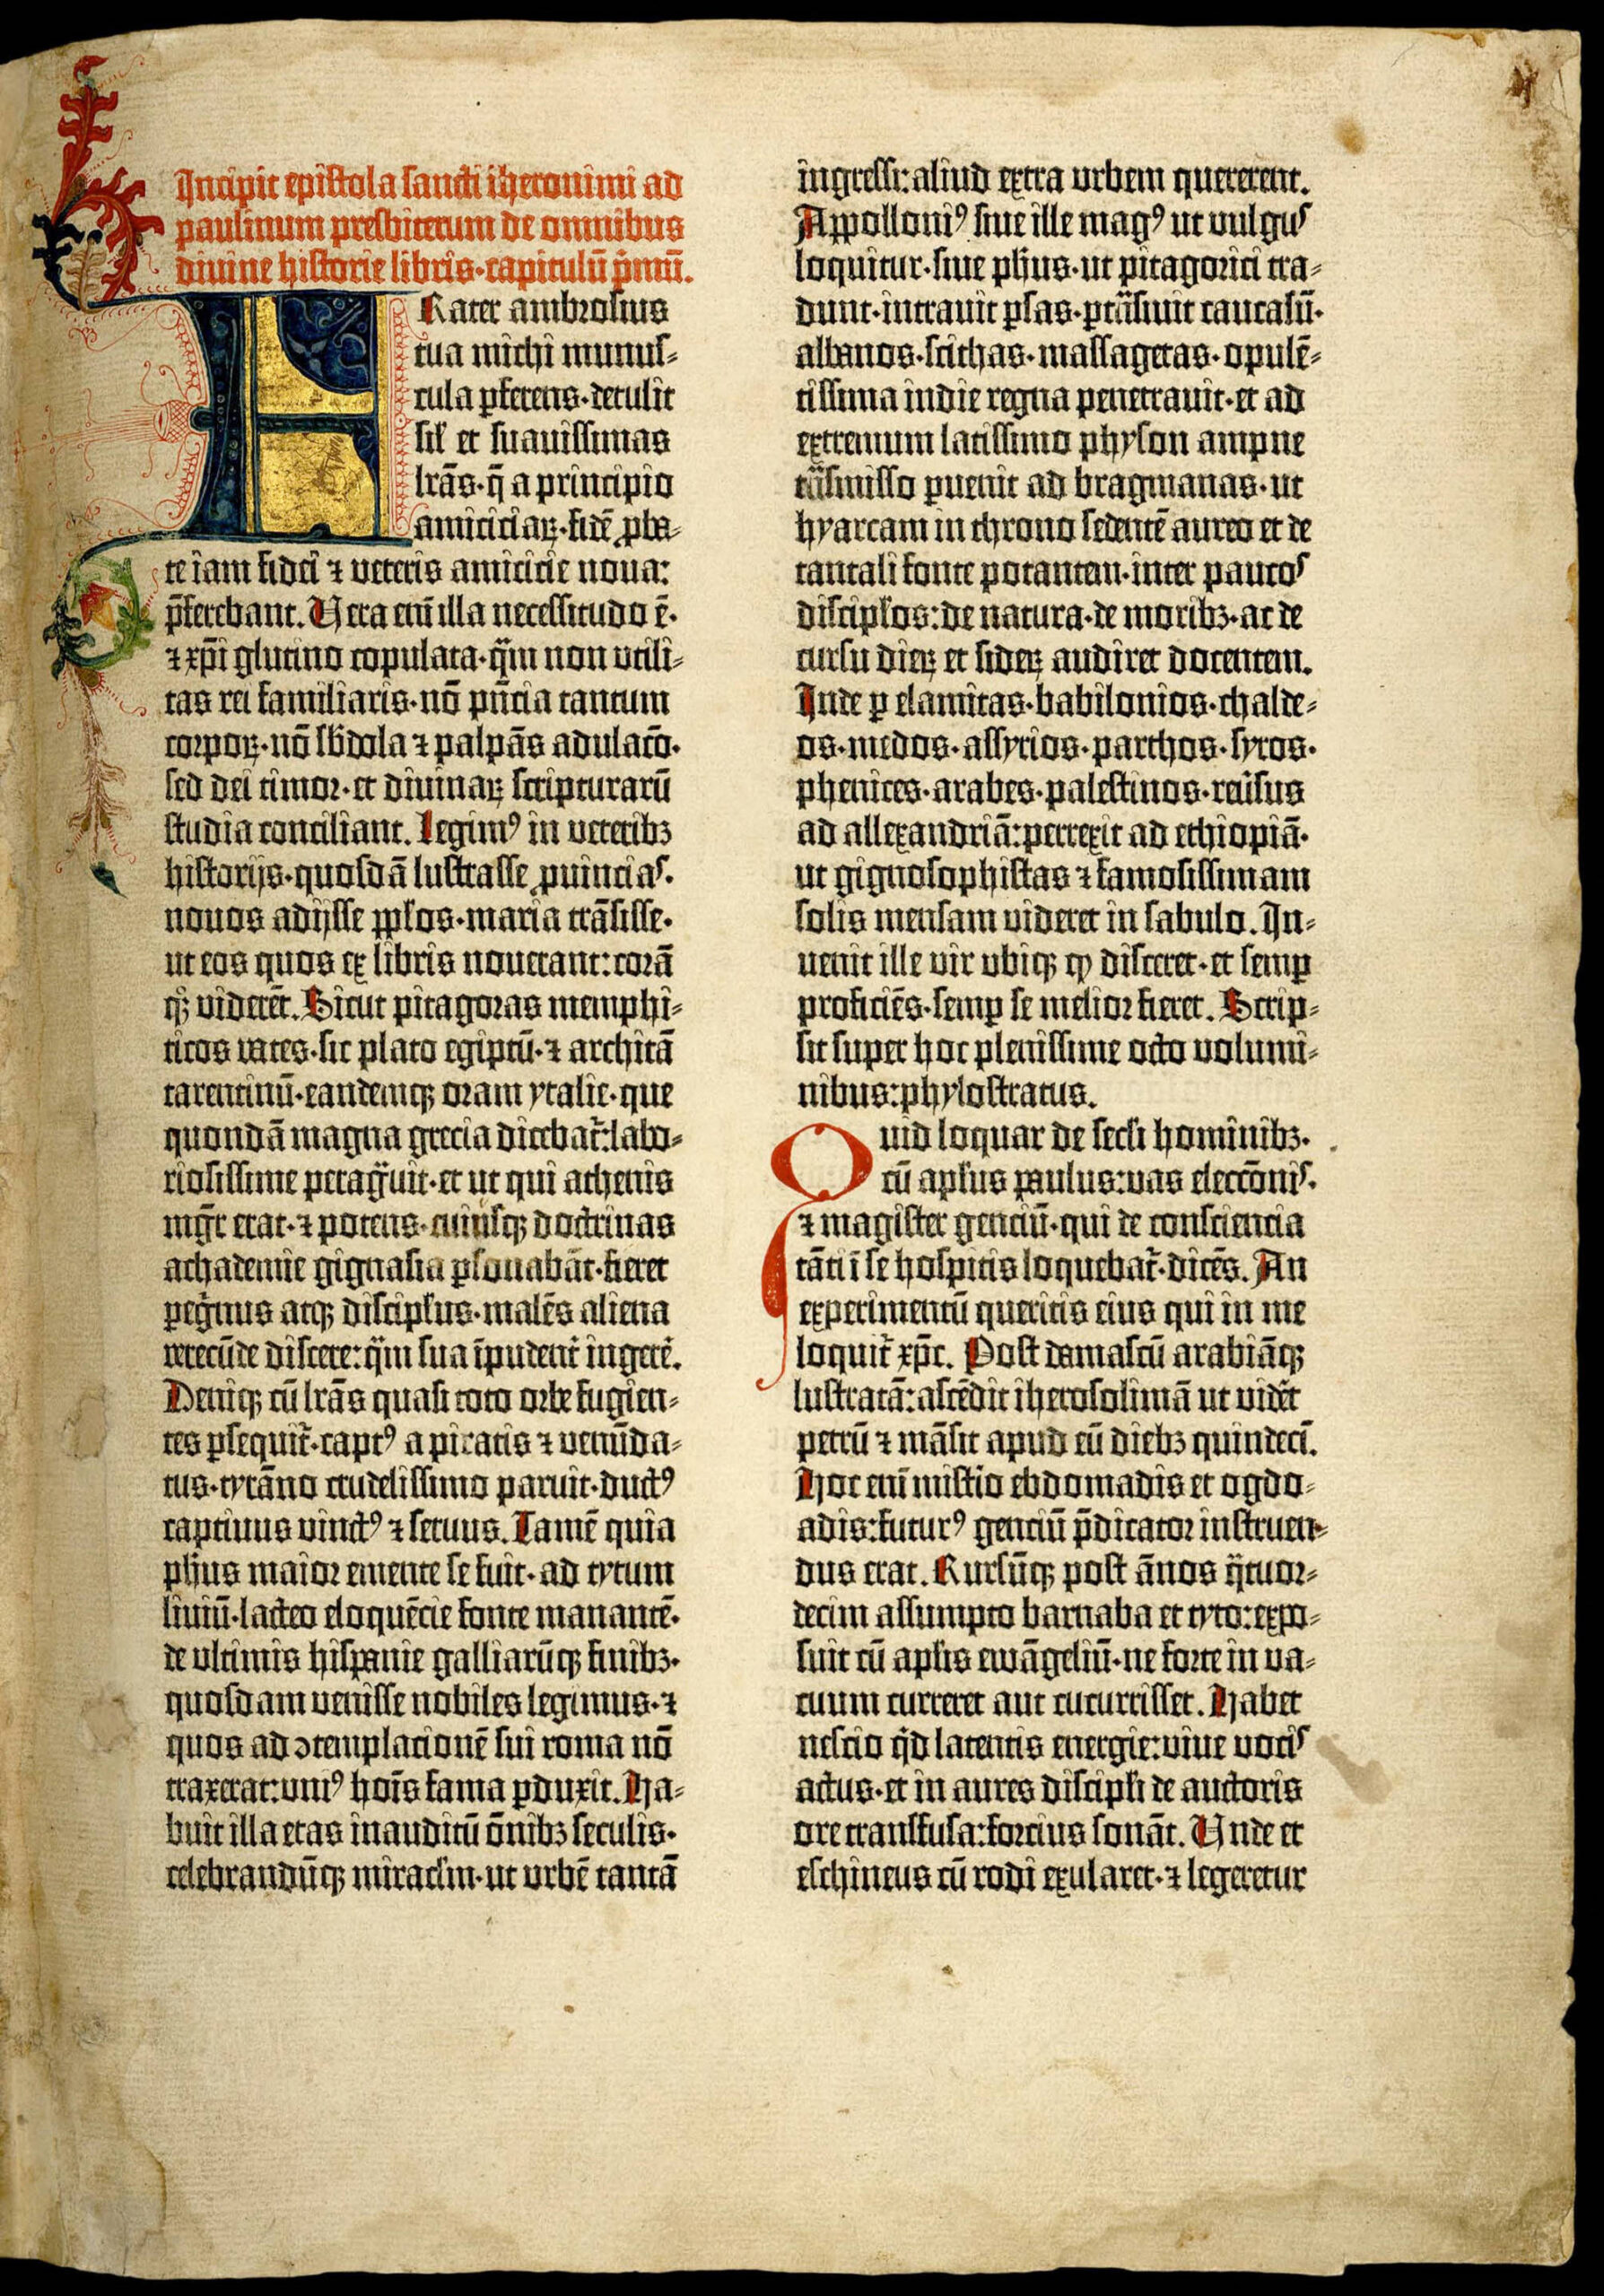 Incipit epistola sancti iheronimi ad
paulinum presbiterum de omnibus
divine historie libris·capitulū p̄mū.
FRater ambrosius
tua michi munus-
cula ꝑferens·detulit
sil' et suavissimas
lrās·q̄ a principio
amiciciaꝝ·fidē ꝓba-
te iam fidei ⁊ veteris amicicie nova:
p̄ferebant. Vera enī illa necessitudo ē·
⁊ xp̄i glutino copulata·qͣm non utili-
tas rei familiaris·nō pn̄cia tantum
corpoꝝ·nō sb̄dola ⁊ palpās adulacō·
sed dei timor·et divinaꝝ scripturarū
studia conciliant. Legimꝰ in veteribꝫ
historijs·quosdā lustrasse ꝓvincias·
novos adijsse ppl'os·maria trāsisse·
ut eos quos ex libris noverant: corā
qꝫ viderēt. Sicut pitagoras memphi-
ticos vates·sic plato egiptū·⁊ architā
tarentinū·eandemqꝫ oram ytalie·que
quondā magna grecia dicebat᷑: labo-
riosissime peragͣvit·et ut qui athenis
mgr̄ erat·⁊ potens·cuiusqꝫ doctrinas
achademie gignasia ꝑsonabāt·fieret
peg̓nus atqꝫ discipl'us·malēs aliena
verecūde discere: qͣm sua īpudent᷑ ingerē.
Deniqꝫ cū lrās quasi toto orbe fugien-
tes ꝑsequit᷑·captꝰ a piratis ⁊ venūda-
tus·tyrāno crudelissimo paruit·ductꝰ
captivus vinctꝰ ⁊ servus. Tamē quia
ph'us maior emente se fuit·ad tytum
liviū·lacteo eloquēcie fonte manantē·
de ultimis hispanie galliarūqꝫ finibꝫ·
quosdam venisse nobiles legimus·⁊
quos ad ꝯtemplacionē sui roma nō
traxerat: uniꝰ hoīs fama ꝑduxit. Ha-
buit illa etas inauditū ōnibꝫ seculis·
celebrandūqꝫ miracl'm·ut urbē tantā
ingressi: aliud extra urbem quererent.
Appolloniꝰ sive ille magꝰ ut vulgus
loquitur·sive ph'us·ut pitagorici tra-
dunt·intravit ꝑsas·ꝑtͣsivit caucasū·
albanos·scithas·massagetas·opulē-
tissima indie regna penetravit·et ad
extremum latissimo physon ampne
tͣsmisso ꝑvenit ad bragmanas·ut
hyarcam in throno sedentē aureo et de
tantali fonte potantem·inter paucos
discipl'os: de natura·de moribꝫ·ac de
cursu dieꝝ et sideꝝ audiret docentem.
Inde ꝑ elamitas·babilonios·chalde-
os·medos·assyrios·parthos·syros·
phenices·arabes·palestinos·revͥsus
ad allexandriā: perrexit ad ethiopiā·
ut gignosophistas ⁊ famosissimam
solis mensam videret in sabulo. In-
venit ille vir ubiqꝫ ꝙ disceret·et semꝑ
proficiēs·semꝑ se melior fieret. Scrip-
sit super hoc plenissime octo volumi-
nibus: phylostratus.
Quid loquar de secl'i hominibꝫ·
cū apl'us paulus: vas electōnis·
⁊ magister genciū·qui de consciencia
tāti ī se hospitis loquebat᷑·dicēs. An
experimentū queritis eius qui in me
loquit᷑ xp̄c. Post damascū arabiāqꝫ
lustratā: ascēdit iherosolimā ut vidēt
petrū ⁊ māsit apud eū diebꝫ quindecī.
Hoc enī mistio ebdomadis et ogdo-
adis: futurꝰ genciū p̄dicator instruen-
dus erat. Rursūqꝫ post ānos qͣtuor-
decim assumpto barnaba et tyto: expo-
suit cū apl'is ewāgeliū·ne forte in va-
cuum curreret aut cucurrisset. Habet
nescio qͥd latentis energie: vive vocis
actus·et in aures discipl'i de auctoris
ore transfusa: forcius sonāt. Unde et
eschineus cū rodi exularet·⁊ legeretur